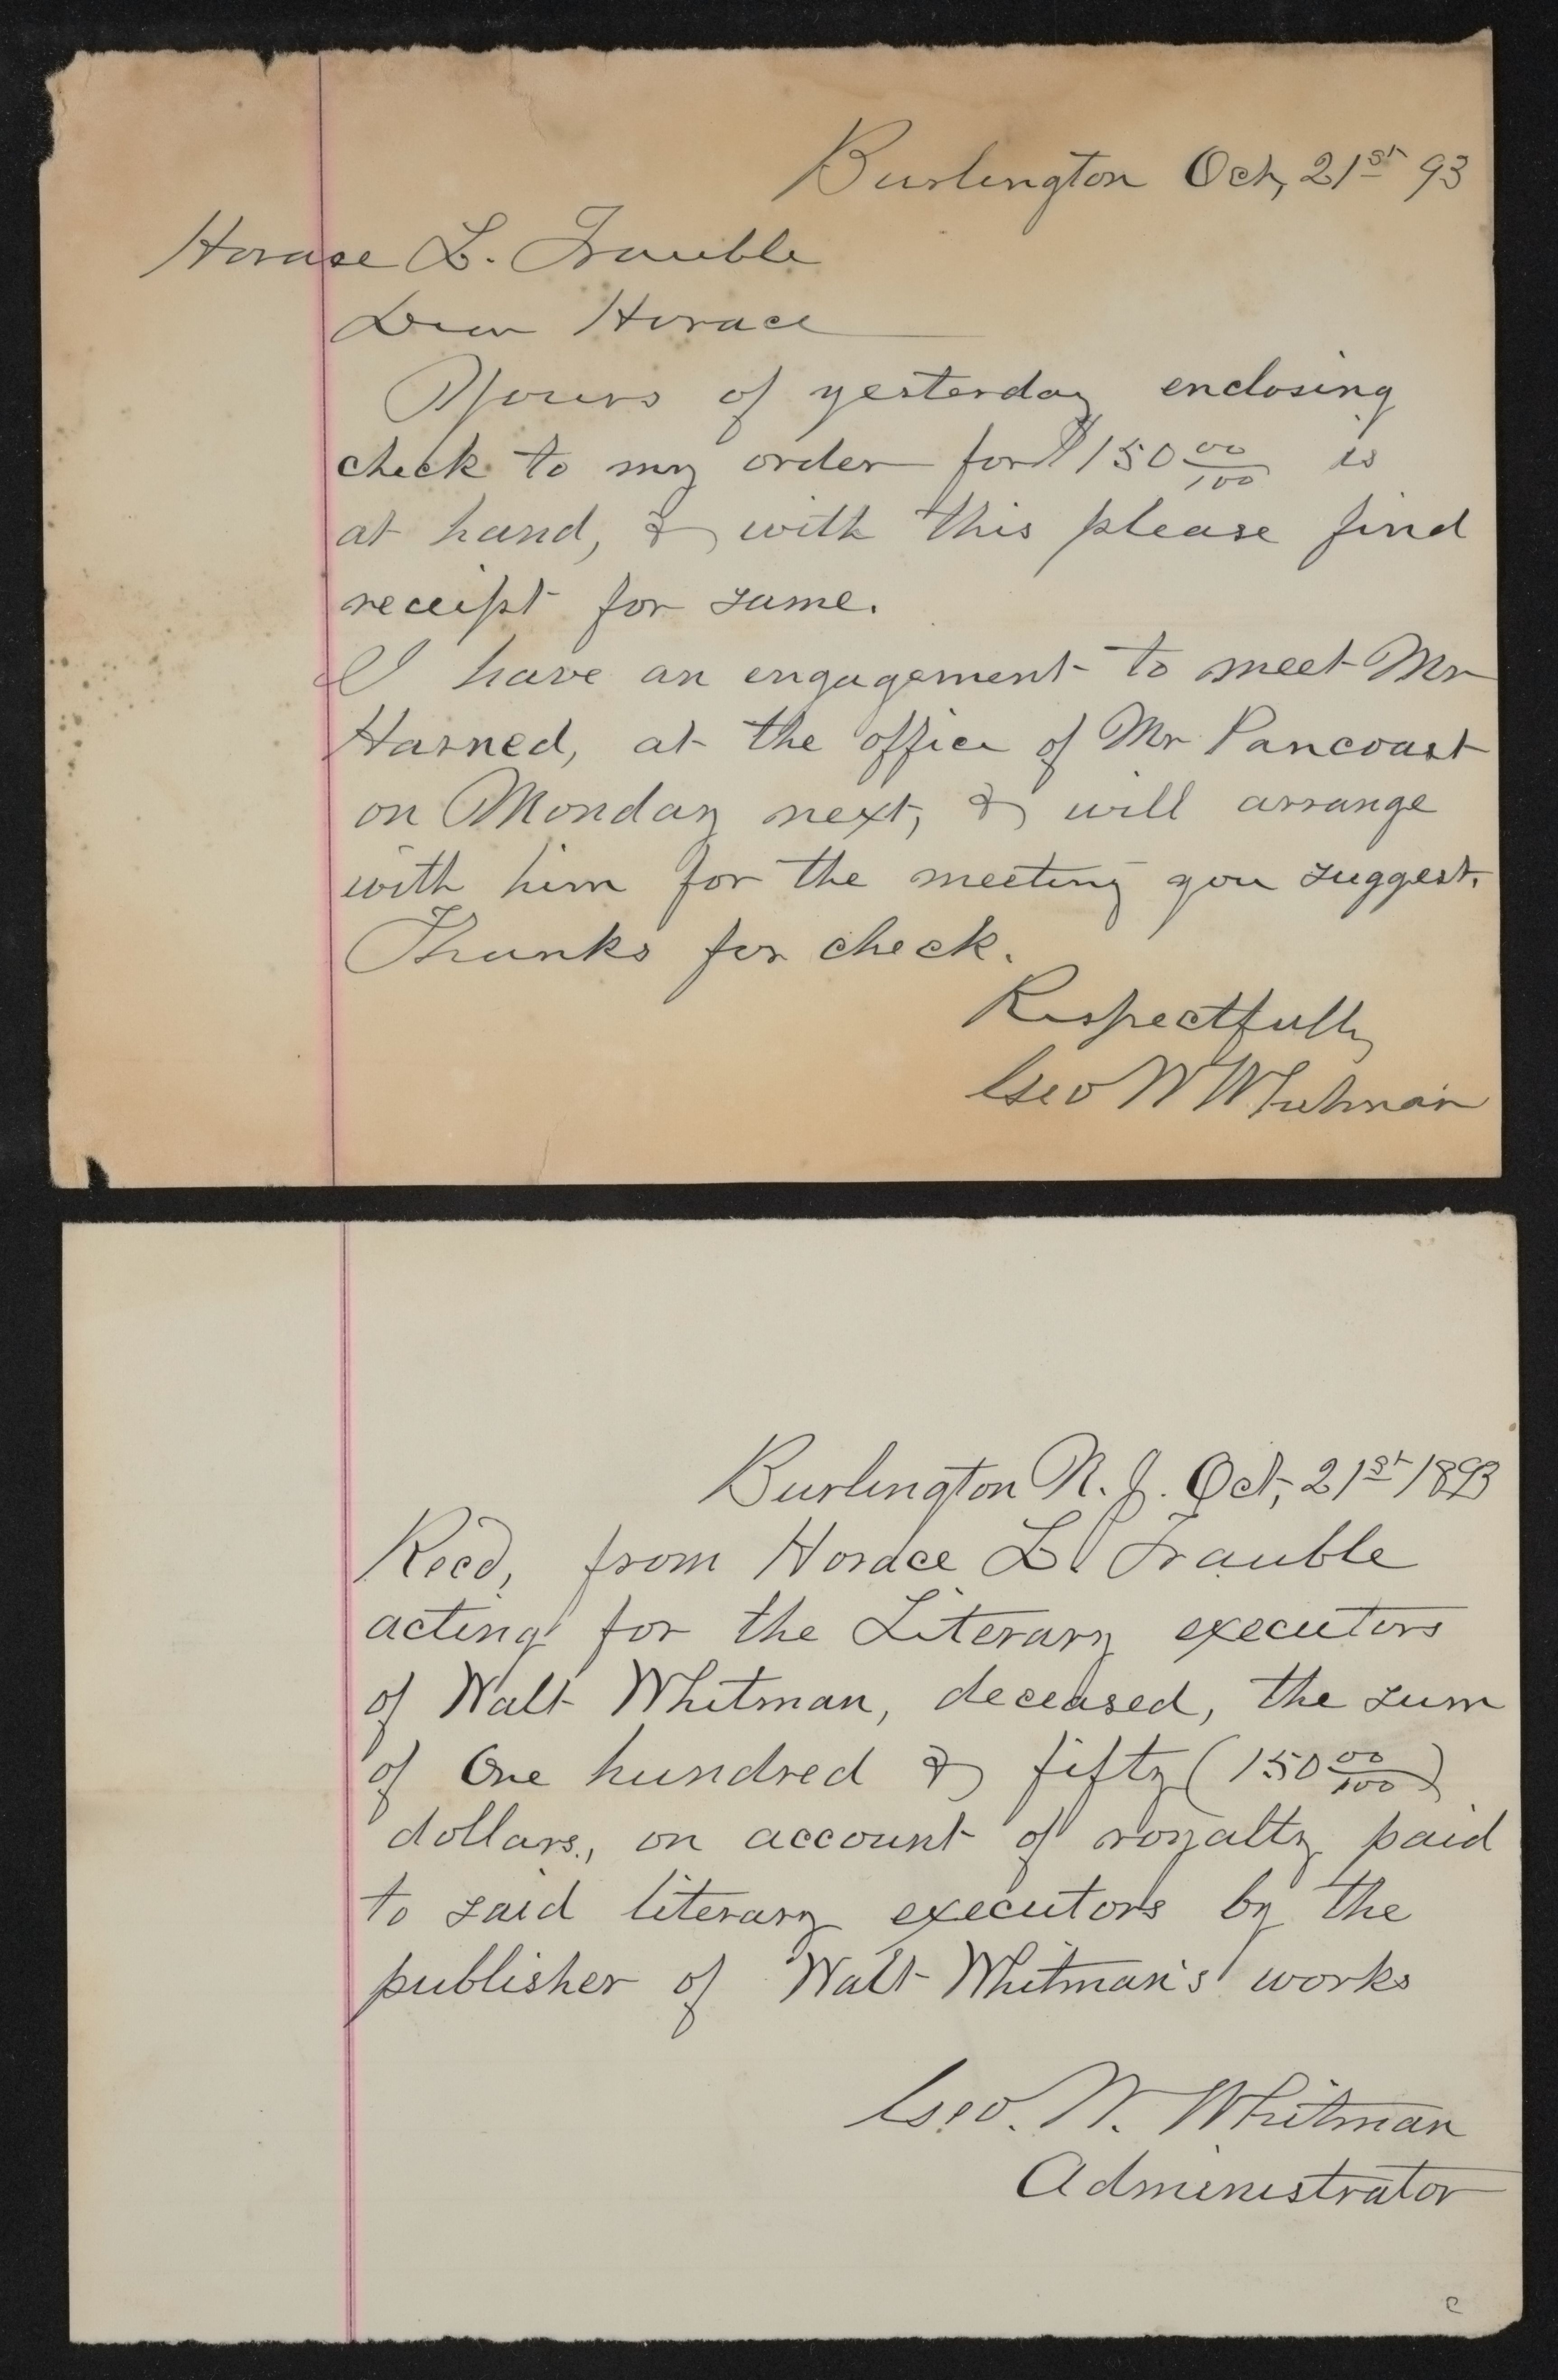 Burlington Oct, 21st 93
Horace L. Trauble
Dear Horace
Yours of yesterday enclosing
check to my order for $150 00/100 is
at hand, & with this please find
receipt for same.
I have an engagement to meet Mr
Harned, at the office of Mr Pancoast
on Monday next, & will arrange
with him for the meeting you suggest.
Thanks for check.
Respectfully
Geo W Whitman
Burlington N. J. Oct, 21st 1893
Recd, from Horace L. Trauble
acting for the Literary executors
of Walt Whitman, deceased, the sum
of One hundred & fifty (150 00/100)
dollars, on account of royalty paid
to said literary executors by the
publisher of Walt Whitman's works
Geo. W. Whitman
Administrator
c